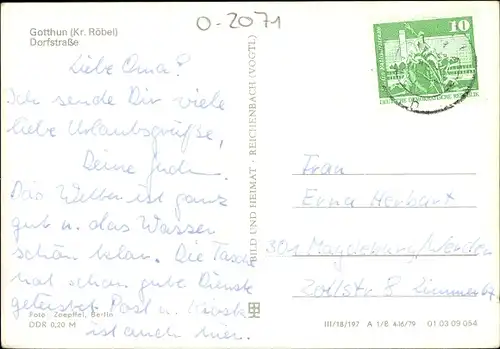 O-2071
Gotthun (Kr. Röbel)
Dorfstraße
Liebe Oma!
Ich sende Dir viele
liebe Urlaubsgrüße,
Deine
Das Wetter ist ganz
gut u. das Wasser
schön klar. Die Tasche
hat schon gute Dienste
geleistet. Post u. Kiosk
ist auch hier.
Foto Zoepffel, Berlin
DDR 0,20 M
BILD UND HEIMAT · REICHENBACH (VOGTL)
10
Frau
Erna Herbart
301 Magdeburg/
8
III/18/197 A 1/8 4-16/79 01 03 09 054